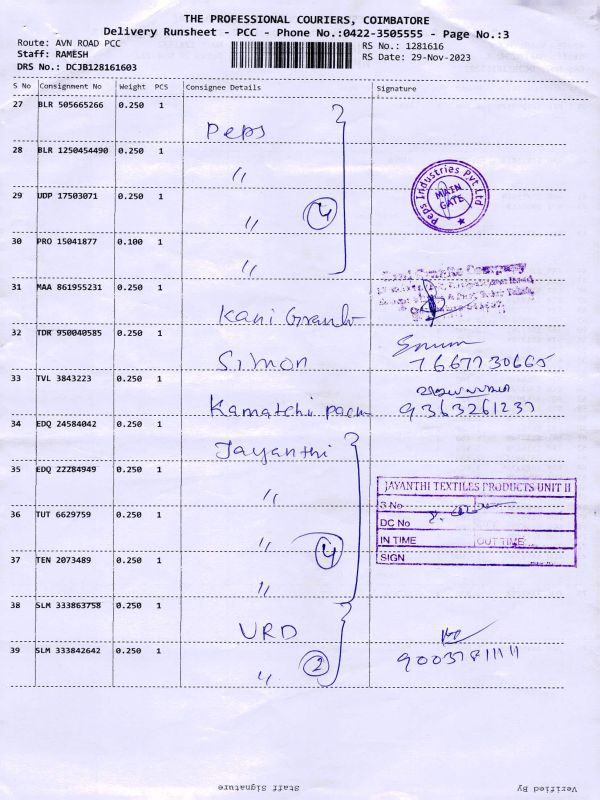 THE PROFESSIONAL COURIERS, COIMBATORE
Delivery Runsheet - PCC - Phone No.:0422-3505555 - Page No.:3
Route: AVN ROAD PCC
RS No.: 1281616
Staff: RAMESH
RS Date: 29-Nov-2023
DRS No.: DCJB128161603
S No Consignment No Weight PCS Consignee Details Signature
27 BLR 505665266 0.250 1 Peps
28 BLR 1250454490 0.250 1 〃
29 UDP 17503071 0.250 1 〃 4
Peps Industries Pvt Ltd
MAIN GATE
30 PRO 15041877 0.100 1 〃
31 MAA 861955231 0.250 1 Kani
32 TDR 950040585 0.250 1 Simon 7667730665
33 TVL 3843223 0.250 1 Kamatchi 9363261233
34 EDQ 24584042 0.250 1 Jayanthi
35 EDQ 22284949 0.250 1 〃
JAYANTHI TEXTILES PRODUCTS UNIT II
S No
DC No
IN TIME OUT TIME
SIGN
36 TUT 6629759 0.250 1 〃 4
37 TEN 2073489 0.250 1 〃
38 SLM 333863758 0.250 1 URD
39 SLM 333842642 0.250 1 〃 2
Staff Signature
Verified By